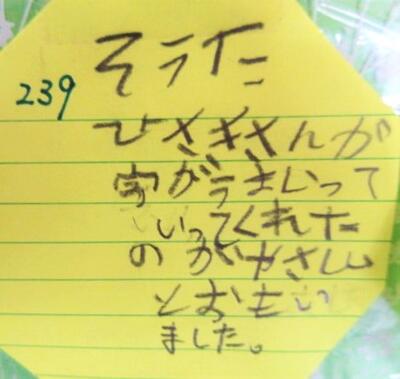 そうた
239
ひさきさんが
字がうまいって
いってくれた
のがやさしい
とおもい
ました。